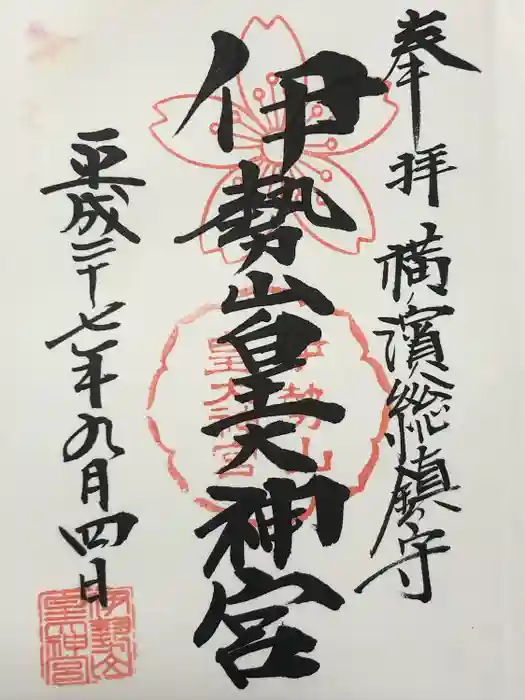 奉拝
横濱総鎮守
伊勢山皇大神宮
伊勢山
皇大神宮
平成二十七年九月四日
伊勢山
皇神宮